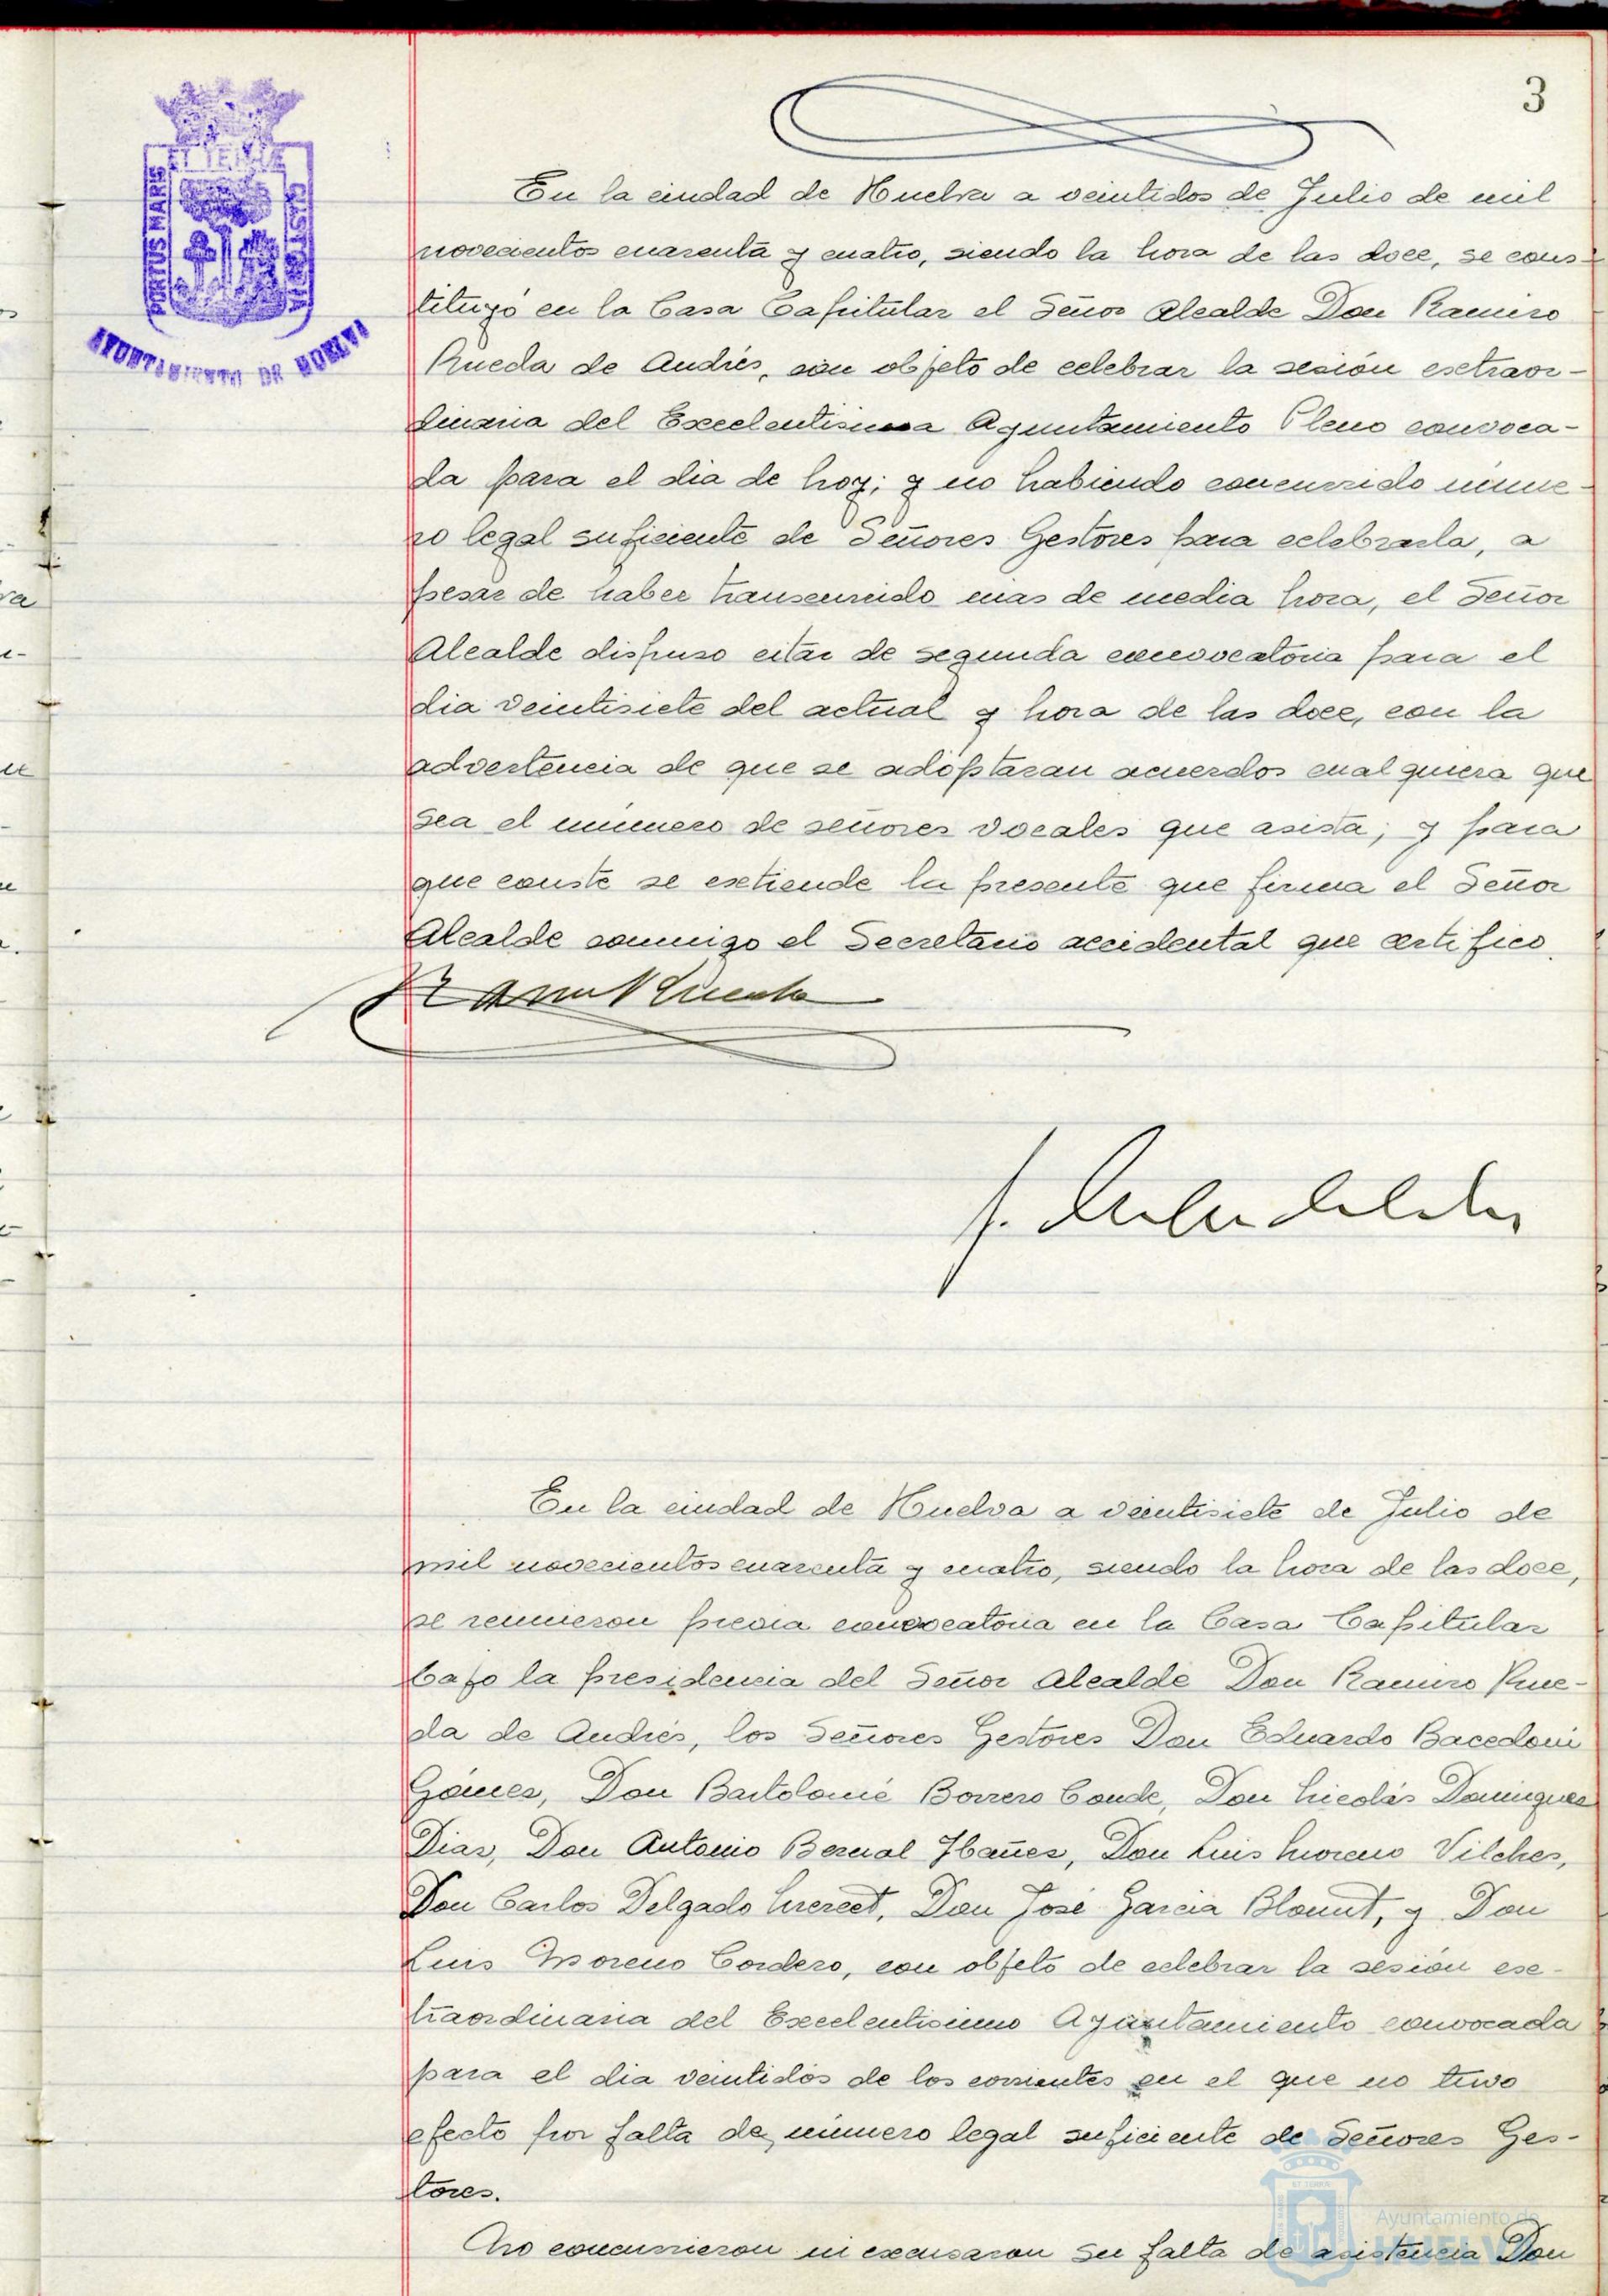 3
ET TERRAE
PORTUS MARIS
CUSTODIA
AYUNTAMIENTO DE HUELVA
En la ciudad de Huelva a veintidos de Julio de mil
novecientos cuarenta y cuatro, siendo la hora de las doce, se cons-
tituyó en la Casa Capitular el Señor Alcalde Don Ramiro
Rueda de Andrés, con objeto de celebrar la sesión extraor-
dinaria del Excelentisima Ayuntamiento Pleno convoca-
da para el dia de hoy; y no habiendo concurrido núme-
ro legal suficiente de Señores Gestores para celebrarla, a
pesar de haber transcurrido mas de media hora, el Señor
Alcalde dispuso citar de segunda convocatoria para el
dia veintisiete del actual y hora de las doce, con la
advertencia de que se adoptaran acuerdos cualquiera que
sea el número de señores vocales que asista; y para
que conste se extiende la presente que firma el Señor
Alcalde conmigo el Secretario accidental que certifico.
En la ciudad de Huelva a veintisiete de Julio de
mil novecientos cuarenta y cuatro, siendo la hora de las doce,
se reunieron previa convocatoria en la Casa Capitular
bajo la presidencia del Señor Alcalde Don Ramiro Rue-
da de Andrés, los Señores Gestores Don Eduardo Bacedoni
Gómez, Don Bartolomé Borrero Conde, Don Nicolás Dominguez
Diaz, Don Antonio Bernal Ibañez, Don Luis Moreno Vilches,
Don Carlos Delgado Don José Garcia Blount, y Don
Luis Moreno Cordero, con objeto de celebrar la sesión ex-
traordinaria del Excelentisimo Ayuntamiento convocada
para el dia veintidós de los corrientes en el que no tuvo
efecto por falta de número legal suficiente de Señores Ges-
tores.
No concurrieron ni excusaron su falta de asistencia Don
Ayuntamiento de
HUELVA